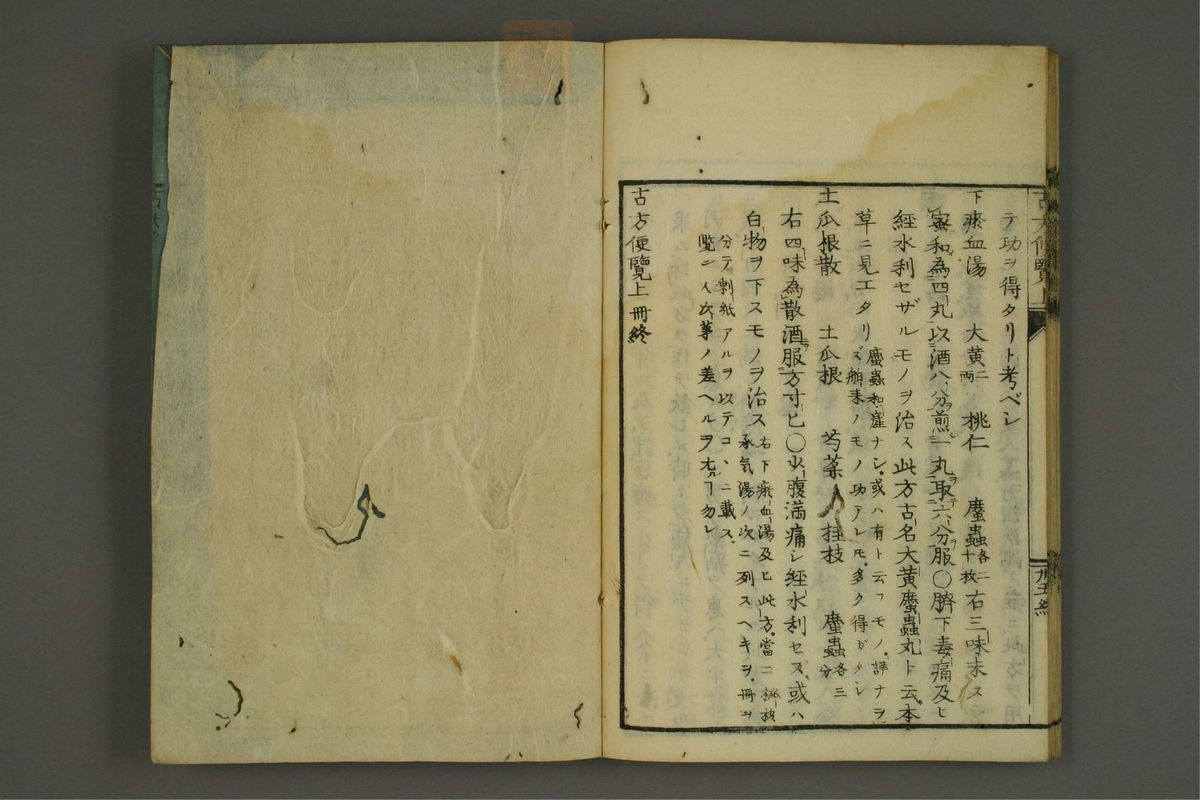 テ功ヲ得タリト考ベシ
下瘀血湯 大黄二両 桃仁 䗪蟲各二十枚 右三味末スラ
蜜和為四丸以酒八分煎一丸取六分服〇臍下毒痛及ヒ
經水利セザルモノヲ治ス此方古名大黄䗪蟲丸ト云本
草ニ見エタリ 䗪蟲和產ナシ或ハ有ト云フモノ詳ナラ
ズ舶来ノモノ功アレモ多ク得ガタシ
土瓜根散 土瓜根 芍薬 桂枝 䗪蟲各三分
右四味為散酒服方寸匕〇少腹満痛シ經水利セズ或ハ
白物ヲ下スモノヲ治ス 右下瘀血湯及ヒ此方當ニ桃核
承気湯ノ次ニ列スヘキヲ冊ヲ
分テ剰紙アルヲ以テコヽニ載ス
覧ン人次苐ノ差ヘルヲ尤ᒣ勿レ
古方便覽上冊終
古方便覽上
卅五終